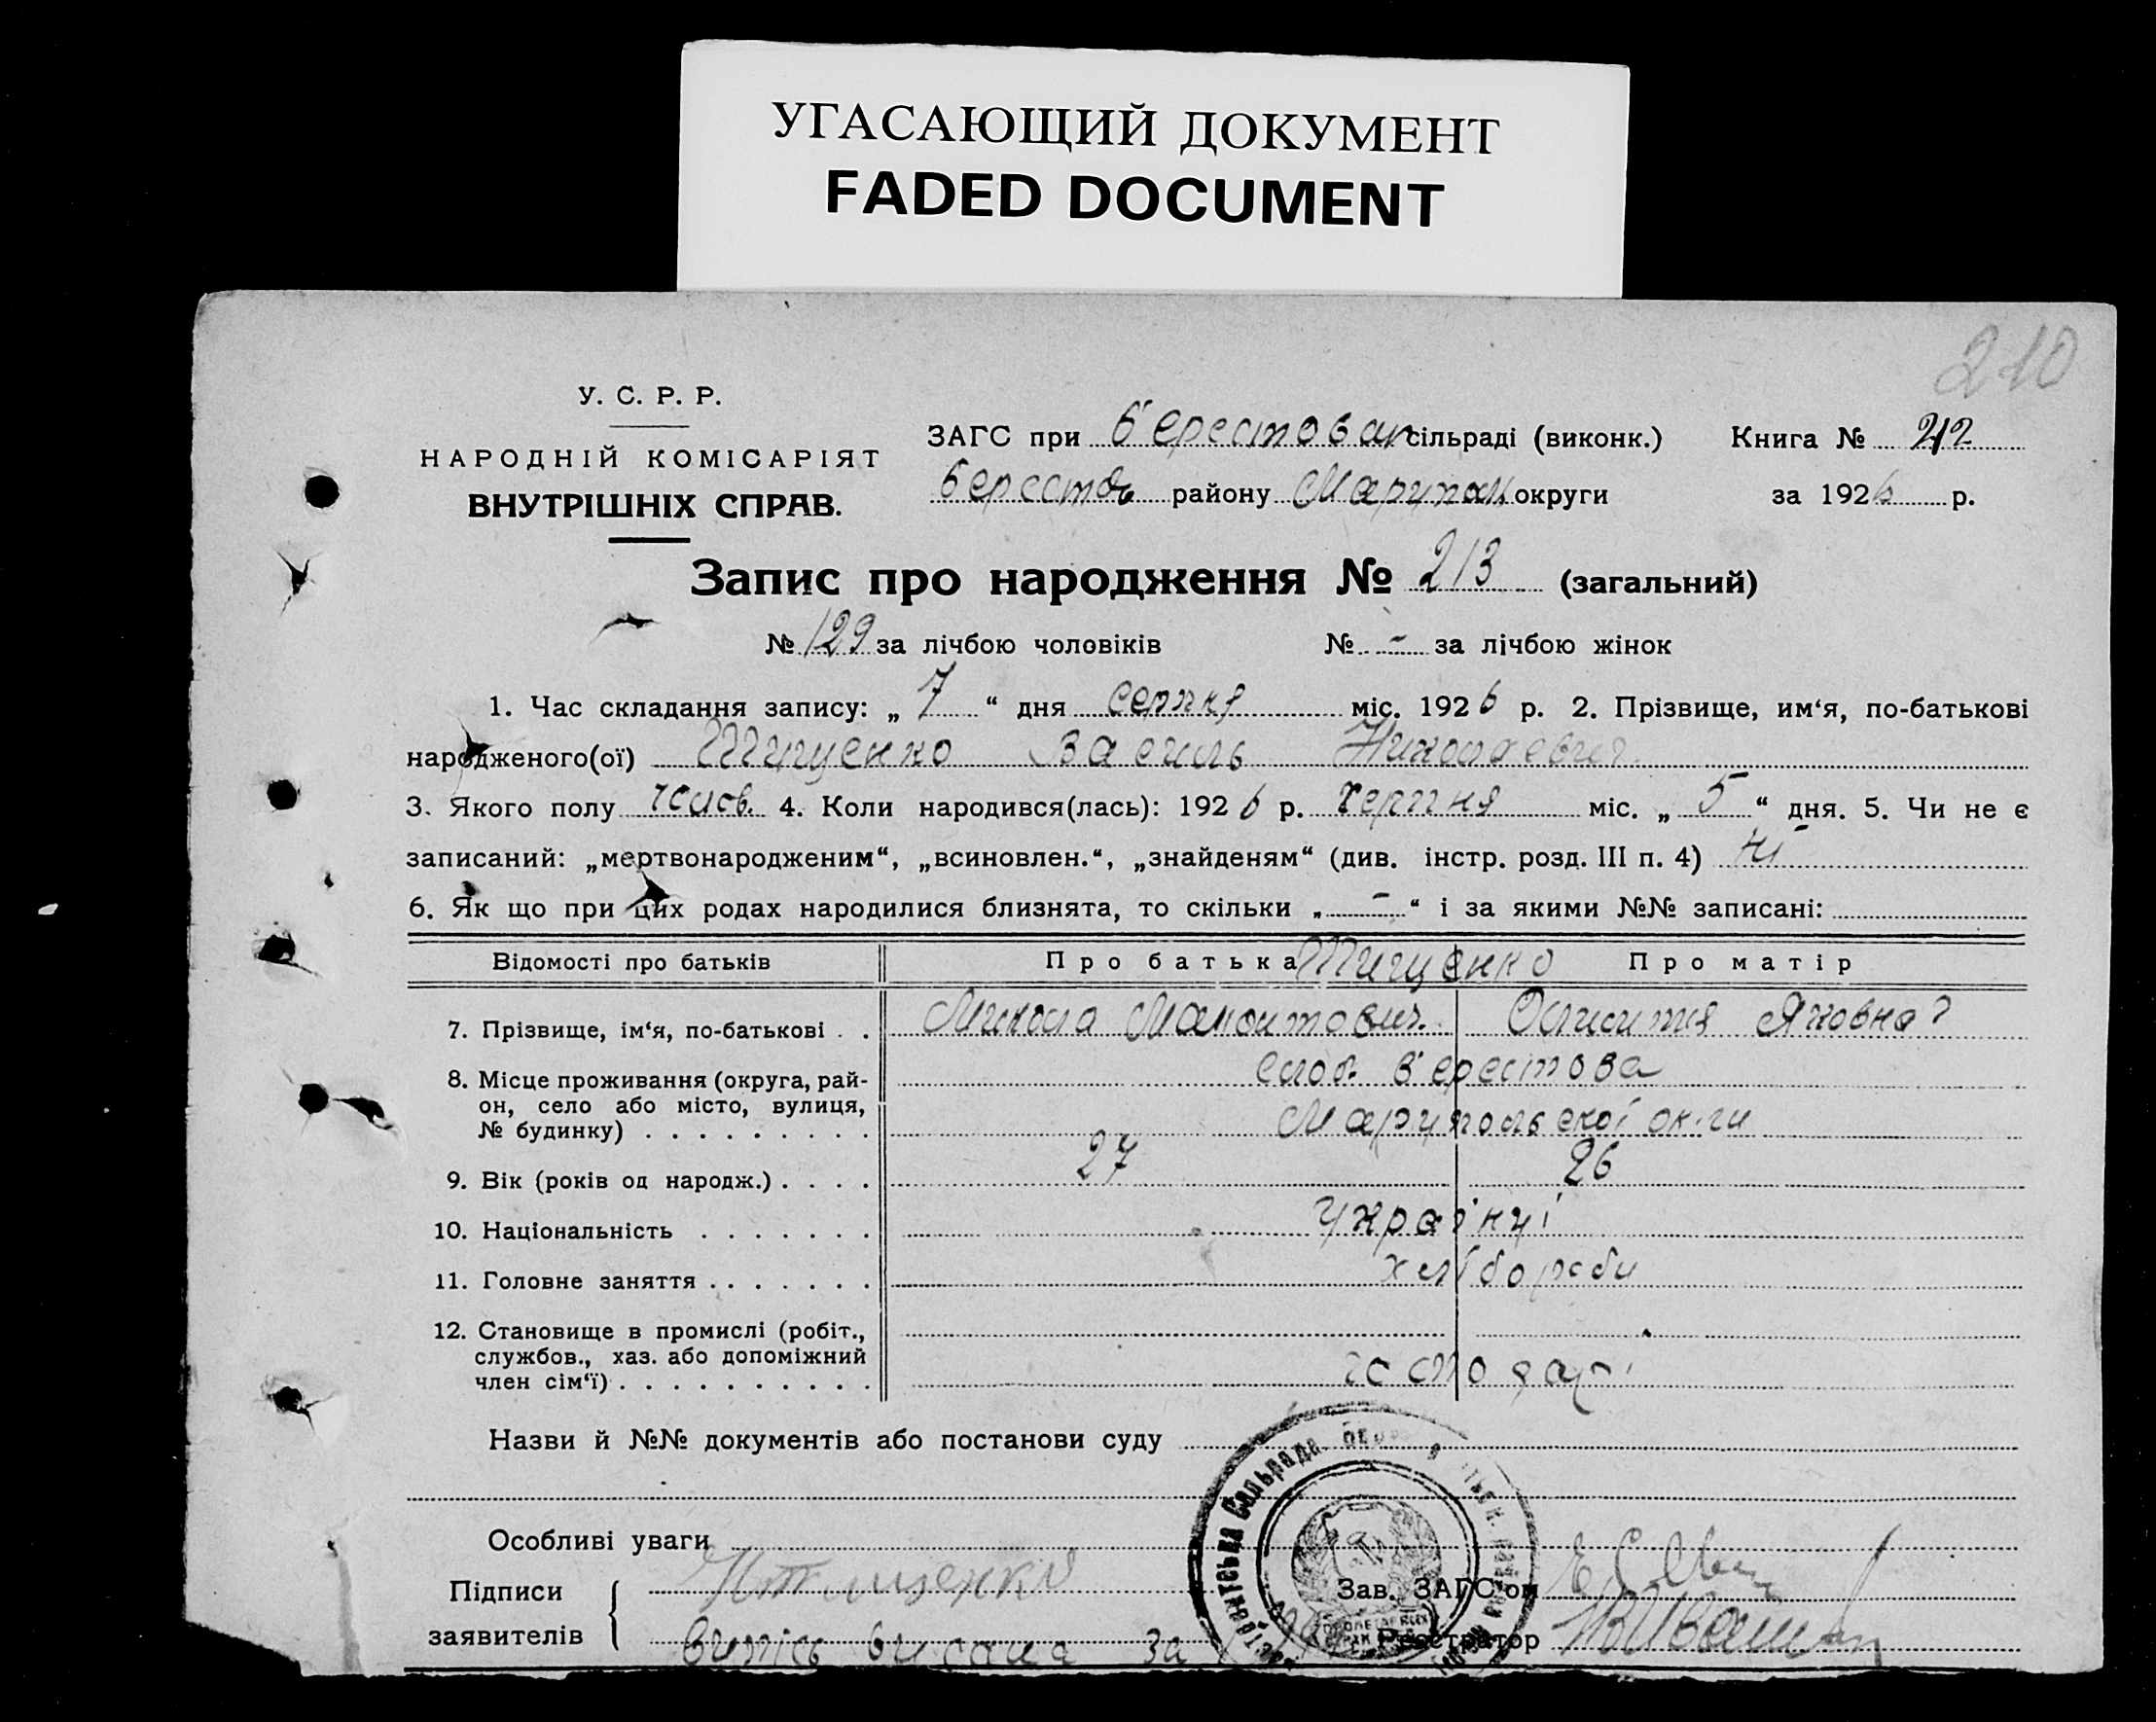 УГАСАЮЩИЙ ДОКУМЕНТ
FADED DOCUMENT
210
У. С. Р. Р.
НАРОДНІЙ КОМІСАРІЯТ
ВНУТРІШНІХ СПРАВ.
ЗАГС при Берестован сільраді (виконк.) Книга № 212
Берестов району Маріупол округи за 1926 р.
Запис про народження № 213 (загальний)
№ 129 за лічбою чоловіків № - за лічбою жінок
1. Час складання запису: „ 7 “ дня серпня міс. 1926 р. 2. Прізвище, им‘я, по-батькові
народженого(ої) Тищенко Василь Николаевич
3. Якого полу чолов. 4. Коли народився(лась): 1926 р. серпня міс. „ 5 “ дня. 5. Чи не є
записаний: „мертвонародженим“, „всиновлен.“, „знайденям“ (див. інстр. розд. III п. 4) ні
6. Як що при цих родах народилися близнята, то скільки „ - “ і за якими №№ записані:
Відомості про батьків Про батька Тищенко Про матір
7. Прізвище, ім‘я, по-батькові . . Микола Мамонтович Яковна
8. Місце проживання (округа, рай-
он, село або місто, вулиця,
№ будинку) . . . . . . . . .
слоб. Берестова
Маріупольскої ок-ги
9. Вік (років од народж.) . . . . 27 26
10. Національність . . . . . . . Українці
11. Головне заняття . . . . . . . хлібороби
12. Становище в промислі (робіт.,
службов., хаз. або допоміжний
член сім‘ї) . . . . . . . . . . господарі
Назви й №№ документів або постанови суду
Особливі уваги
Підписи
заявителів
Н Тищенко
Випись видана за
Зав. ЗАГС‘ом
Реєстратор
Сільрада